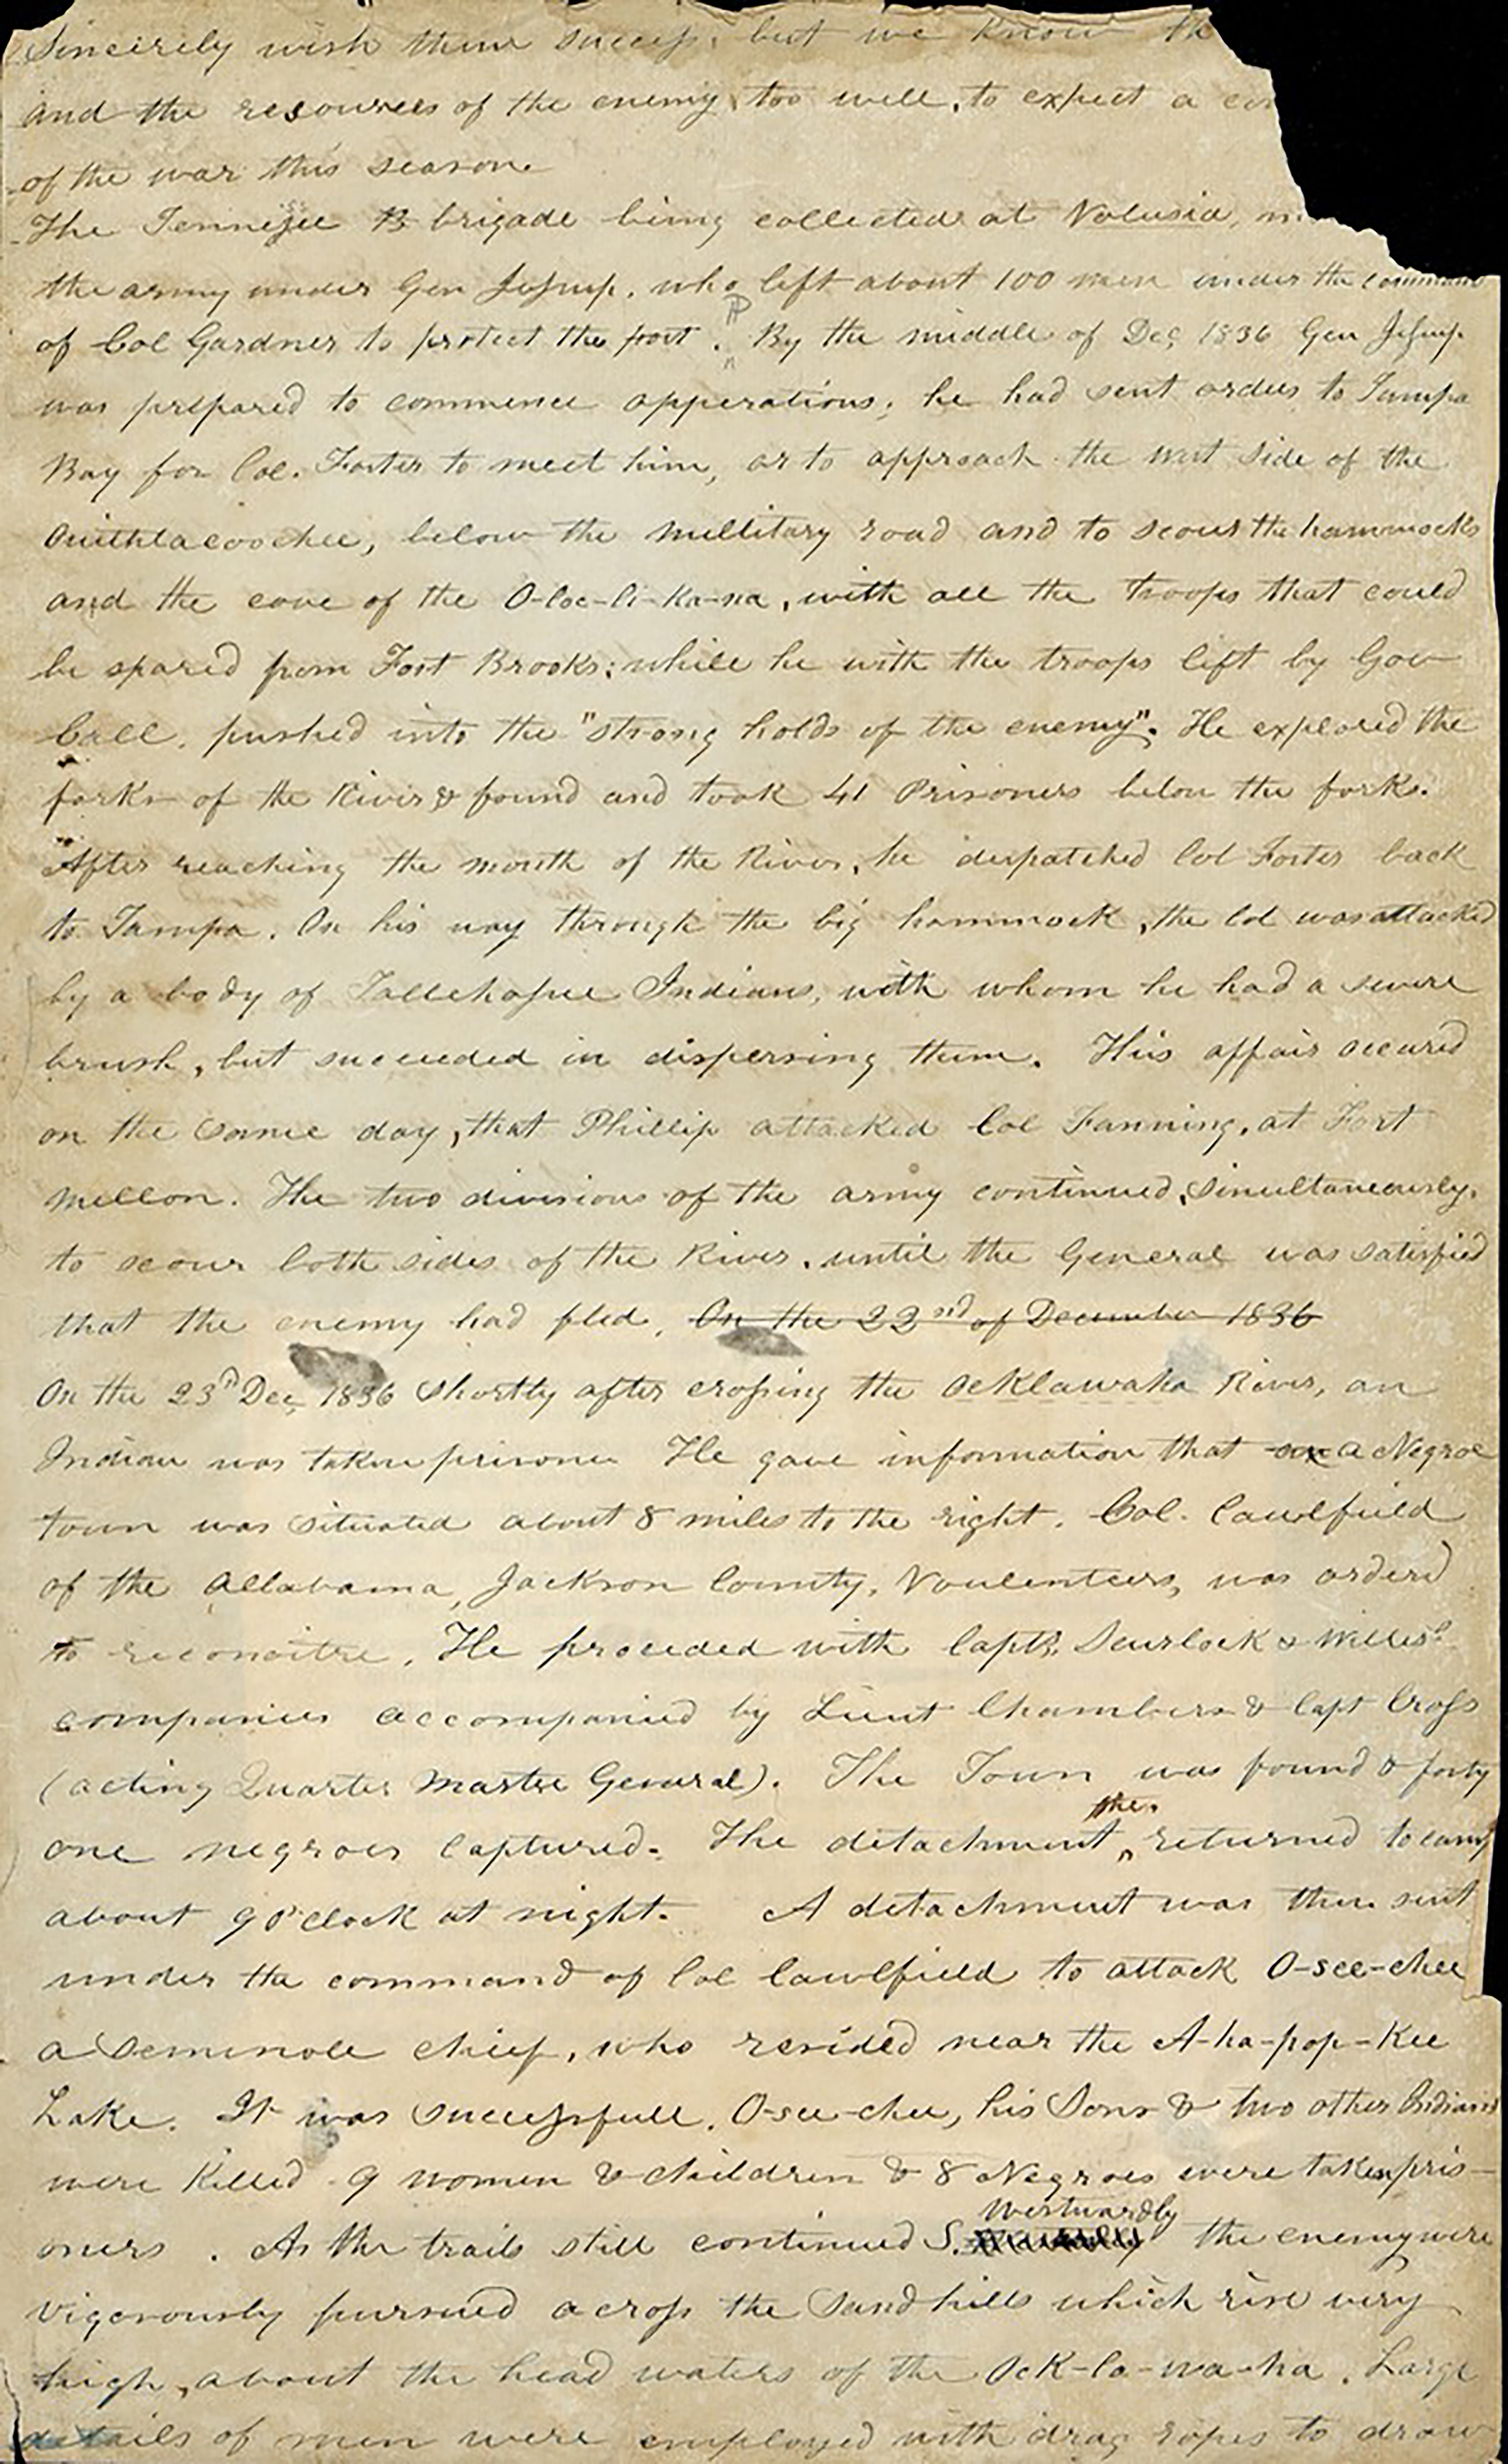 Sincerely wish them success, but we know th
and the resources of the enemy too well, to expect a co
of the war this season.
The Tennessee B brigade being collected at Volusia,
the army under Gen Jesup, who left about 100 men under the command
of Col Gardner to protect the post. P By the middle of Dec 1836 Gen Jesup
was prepared to commence apperations; he had sent orders to Tampa
Bay for Col. Foster to meet him, or to approach the west side of the
Ouithlacoochee, below the millitary road and to scour the hammocks
and the cove of the O-loc-li-ka-na, with all the troops that could
be spared from Fort Brooks; while he with the troops left by Gov
Call, pushed into the "strong holds of the enemy". He explored the
forks of the River & found and took 41 Prisoners below the forks.
After reaching the mouth of the River, he dispatched Col Foster back
to Tampa. On his way through the big hammock, the Col was attacked
by a body of Tallehasee Indians, with whom he had a severe
brush, but succeeded in dispersing them. This affair occured
on the same day, that Phillip attacked Col Fanning, at Fort
Mellon. The two divisions of the army continued, simultaneously,
to scour both sides of the River, until the General was satisfied
that the enemy had fled. On the 22nd of December 1836
On the 23d Dec 1836 shortly after crossing the Ocklawaha River, an
Indian was taken prisoner He gave information that a Negroe
town was situated about 8 miles to the right. Col. Caulfield
of the Allabama, Jackson County, Voulenteers, was orderd
to reconoitre. He proceded with Capts. Scurlock & Willis'
companies accompanied by Lieut Chambers & Capt Cross
(acting Quarter Master General). The Town was found & forty
one negroes captured. The detachment the. returned to camp
about 9 o'clock at night. A detachment was then sent
under the command of Col Caulfield to attack O-see-chee
a Seminole chief, who resided near the A-ha-pop-kee
Lake. It was successfull. O-see-chee, his Sons & two other Indians
were Killed 9 women & children & 8 Negroes were taken pris-
oners. As the trails still continued S. Westwardly the enemy were
vigorously pursued across the Sandhills which rise very
high, about the head waters of the Ock-la-wa-ha. Large
details of men were employed with drag ropes to draw